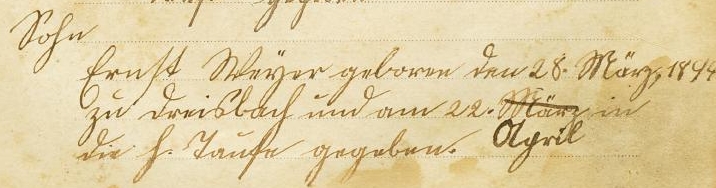 Sohn
Ernst Weyer geboren den 28. März, 1894
zu Dreisbach und am 22. März in
April
die h. Taufe gegeben.